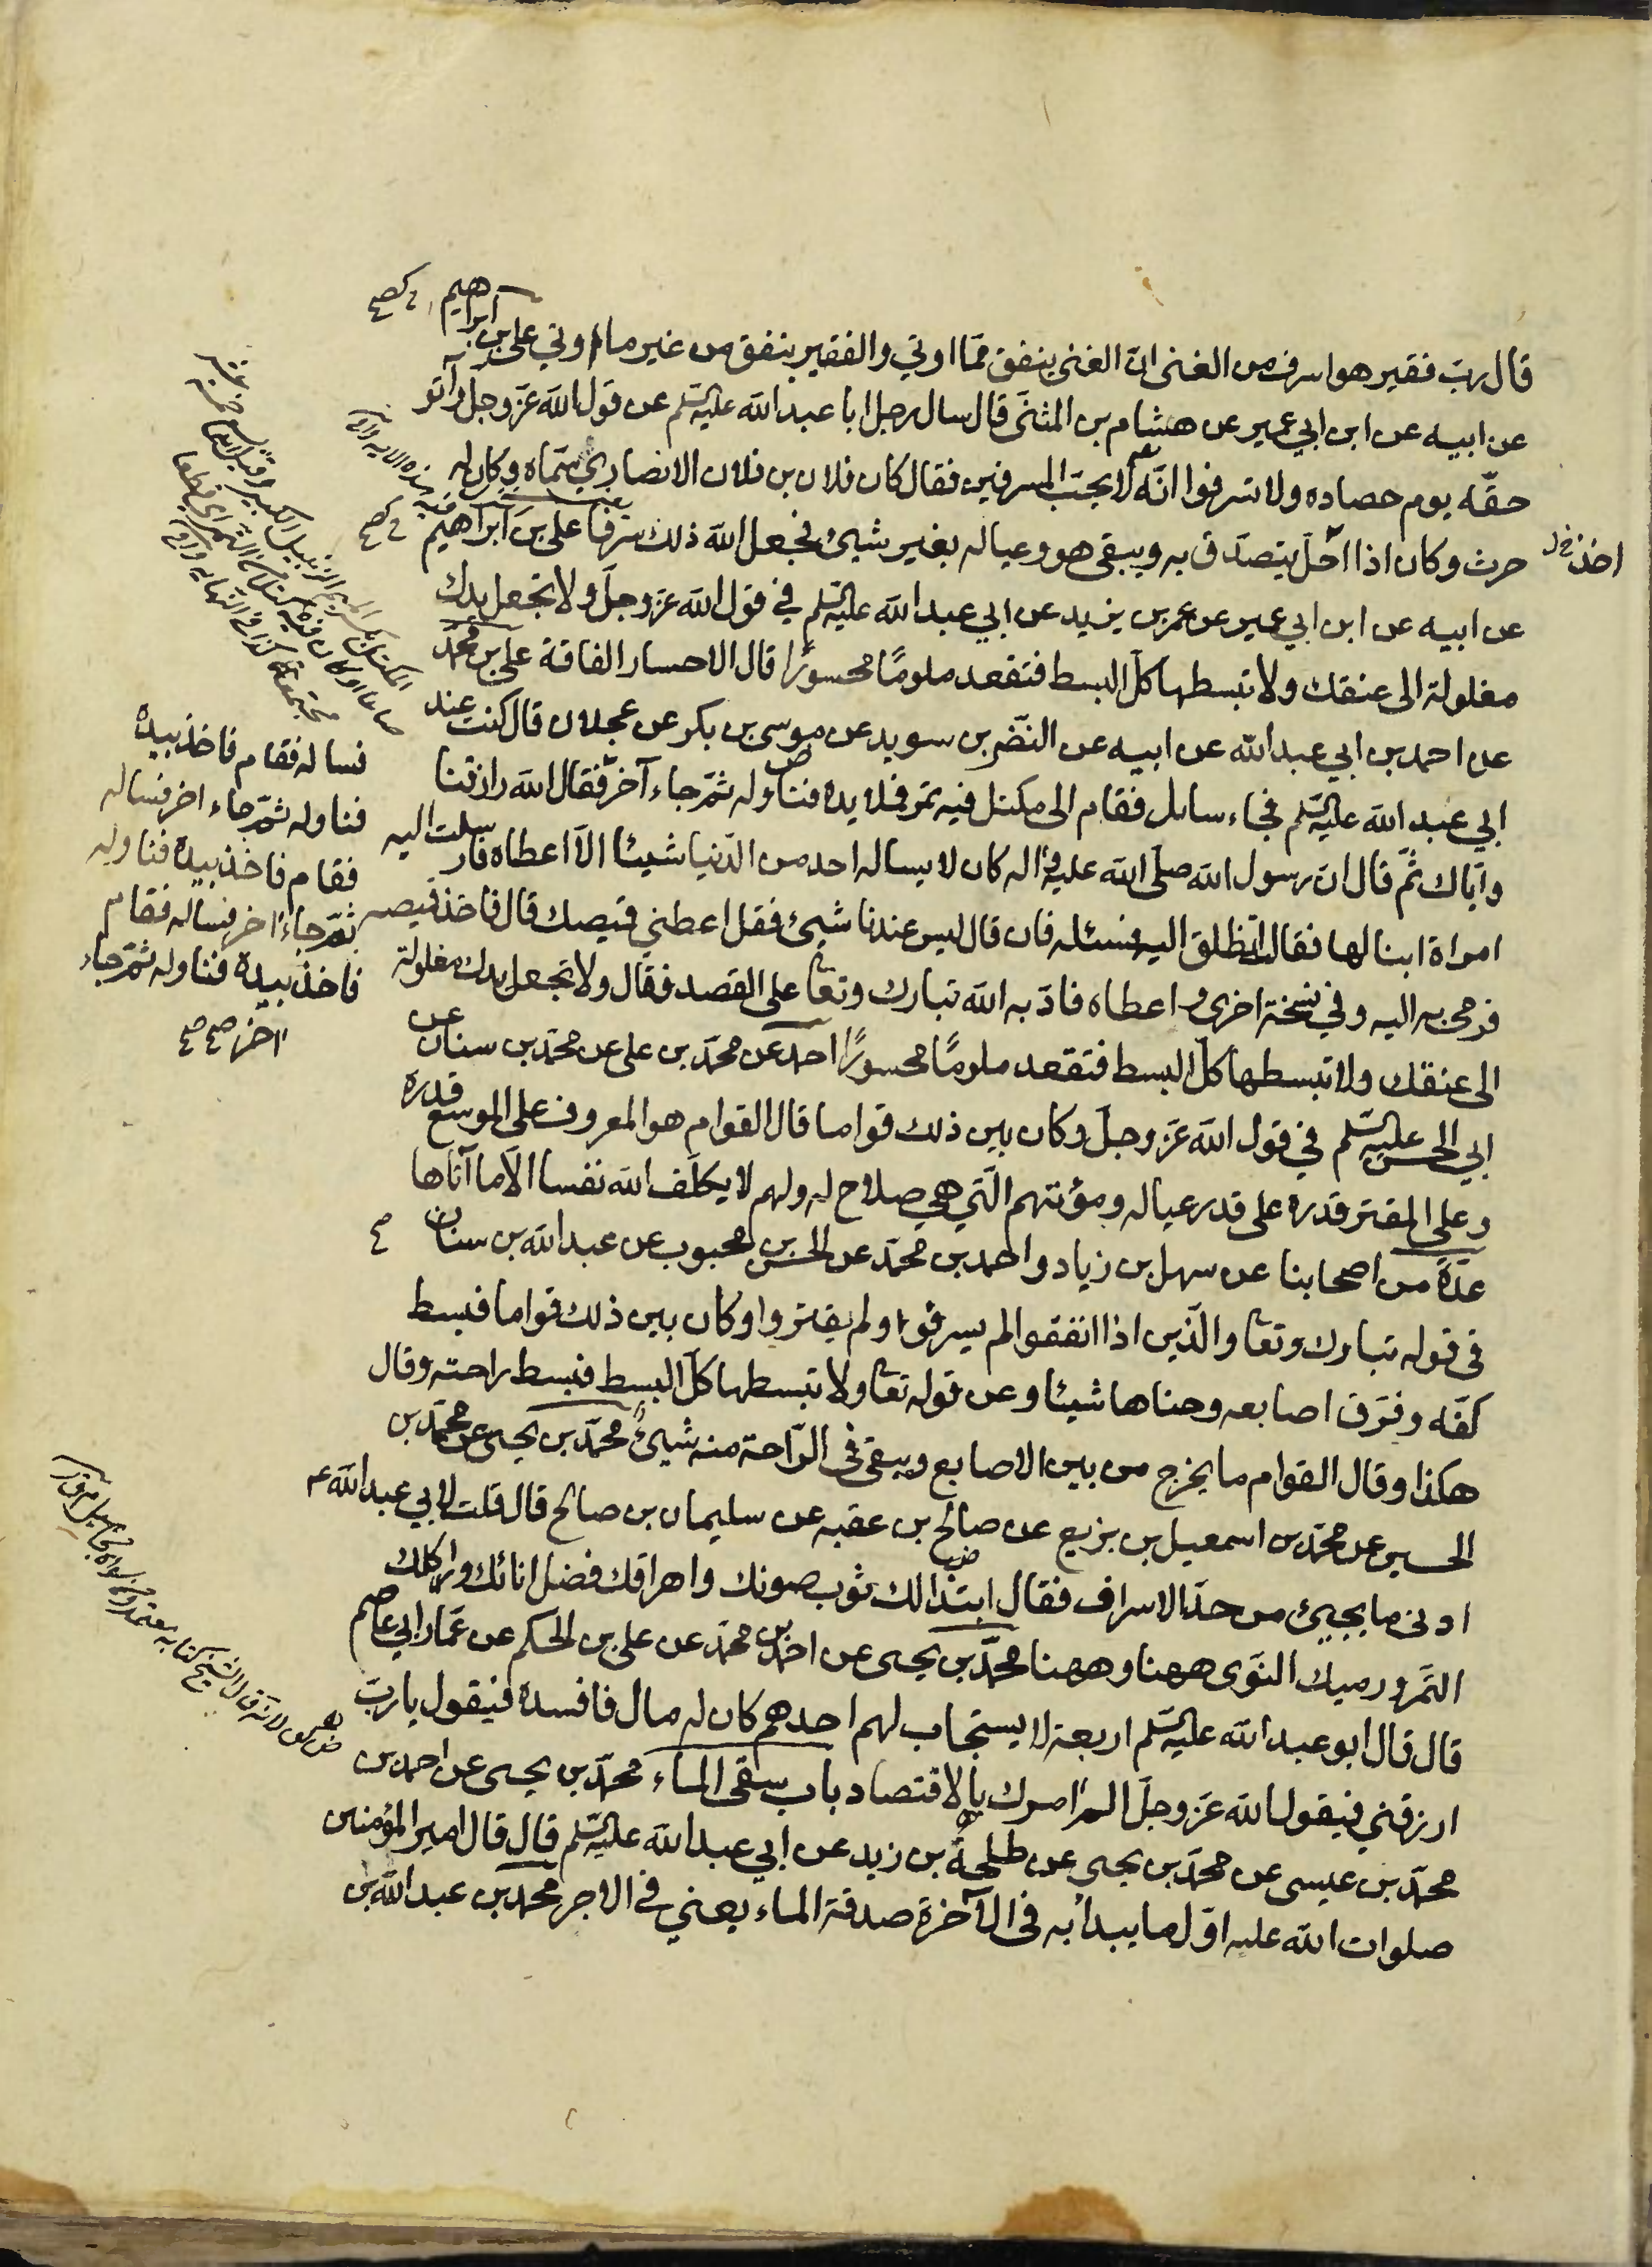 قال رب فقير هو اسرف من الغني ان الغني ينفق مما اوتي والفقير ينفق من غير ما اوتي علي بن ابراهيم
عن ابيه عن ابن ابي عمير عن هشام بن المثنى قال سال رجل ابا عبد الله عليه السلم عن قول الله عز وجل وآتو
حقه يوم حصاده ولا تسرفوا انه لا يحب المسرفين فقال كان فلان بن فلان الانصاري سماه وكان له
حرث وكان اذا احل يتصدق به ويبقى هو وعياله بغير شيئ فجعل الله ذلك سرفا علي بن ابراهيم
اخذ
عن ابيه عن ابن ابي عمير عن عمر بن يزيد عن ابي عبد الله عليه السلم في قول الله عز وجل ولا تجعل يدك
مغلولة الى عنقك ولا تبسطها كل البسط فتقعد ملومًا محسورًا قال الاحسار الفاقة علي بن محمد
عن احمد بن ابي عبد الله عن ابيه عن النضر بن سويد عن موسى بن بكر عن عجلان قال كنت عند
ابي عبد الله عليه السلم فجاء سائل فقام الى مكتل فيه تمر فملا يده فناوله ثم جاء آخر فقال الله رازقنا
واياك ثم قال ان رسول الله صلى الله عليه واله كان لا يساله احد من الدنيا شيئا الا اعطاه فارسلت اليه
امراة ابنا لها فقالت انطلق اليه فسئله فان قال ليس عندنا شيئ فقل اعطني قميصك قال فاخذ قميصه
فرمى به اليه وفي نسخة اخرى واعطاه فادبه الله تبارك وتعا على القصد فقال ولا تجعل يدك مغلولة
الى عنقك ولا تبسطها كل البسط فتقعد ملومًا محسورًا احمد عن محمد بن علي عن محمد بن سنان عن
ابي الحسن عليه السلم في قول الله عز وجل وكان بين ذلك قواما قال القوام هو المعروف على الموسع قدره
وعلى المقتر قدره على قدر عياله ومؤنتهم التي هي صلاح له ولهم لا يكلف الله نفسا الا ما آتاها
عدة من اصحابنا عن سهل بن زياد واحمد بن محمد عن الحسن بن محبوب عن عبد الله بن سنان
في قوله تبارك وتعا والذين اذا انفقوا لم يسرفوا ولم يقتروا وكان بين ذلك قواما فبسط
كفه وفرق اصابعه وحناها شيئا وعن قوله تعا ولا تبسطها كل البسط فبسط راحته وقال
هكذا وقال القوام ما يخرج من بين الاصابع ويبقى في الراحة منه شيئ محمد بن يحيى عن محمد بن
الحسين عن محمد بن اسمعيل بن بزيع عن صالح بن عقبه عن سليمان بن صالح قال قلت لابي عبد الله ع
ادنى ما يجيئ من حد الاسراف فقال ابتذالك ثوب صونك واهراقك فضل انائك واكلك
التمر ورميك النوى ههنا وههنا محمد بن يحيى عن احمد بن محمد عن علي بن الحكم عن عمار ابي عاصم
قال قال ابو عبد الله عليه السلم اربعة لا يستجاب لهم احدهم كان له مال فافسده فيقول يا رب
ارزقني فيقول الله عز وجل الم آمرك بالاقتصاد باب سقي الماء محمد بن يحيى عن احمد بن
محمد بن عيسى عن محمد بن يحيى عن طلحة بن زيد عن ابي عبد الله عليه السلم قال قال امير المؤمنين
صلوات الله عليه اول ما يبدأ به في الآخرة صدقة الماء يعني في الاجر محمد بن عبد الله بن
فساله فقام فاخذ بيده
فناوله ثم جاء اخر فساله
فقام فاخذ بيده فناوله
ثم جاء اخر فساله فقام
فاخذ بيده فناوله ثم جاء
اخر